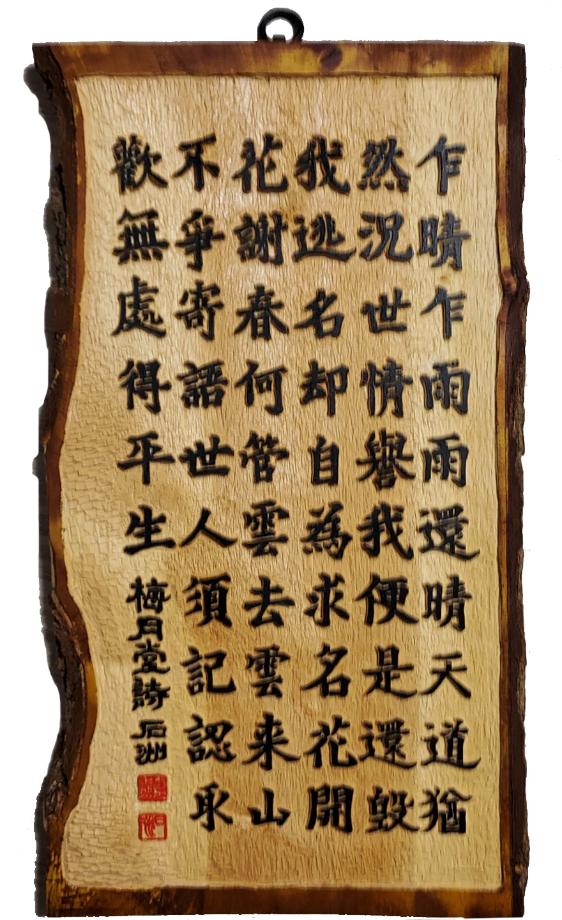 乍晴乍雨雨還晴天道猶
然況世情譽我便是還毀
我逃名却自為求名花開
花謝春何管雲去雲来山
不爭寄語世人須記認取
歡無處得平生
梅月堂詩 石洲